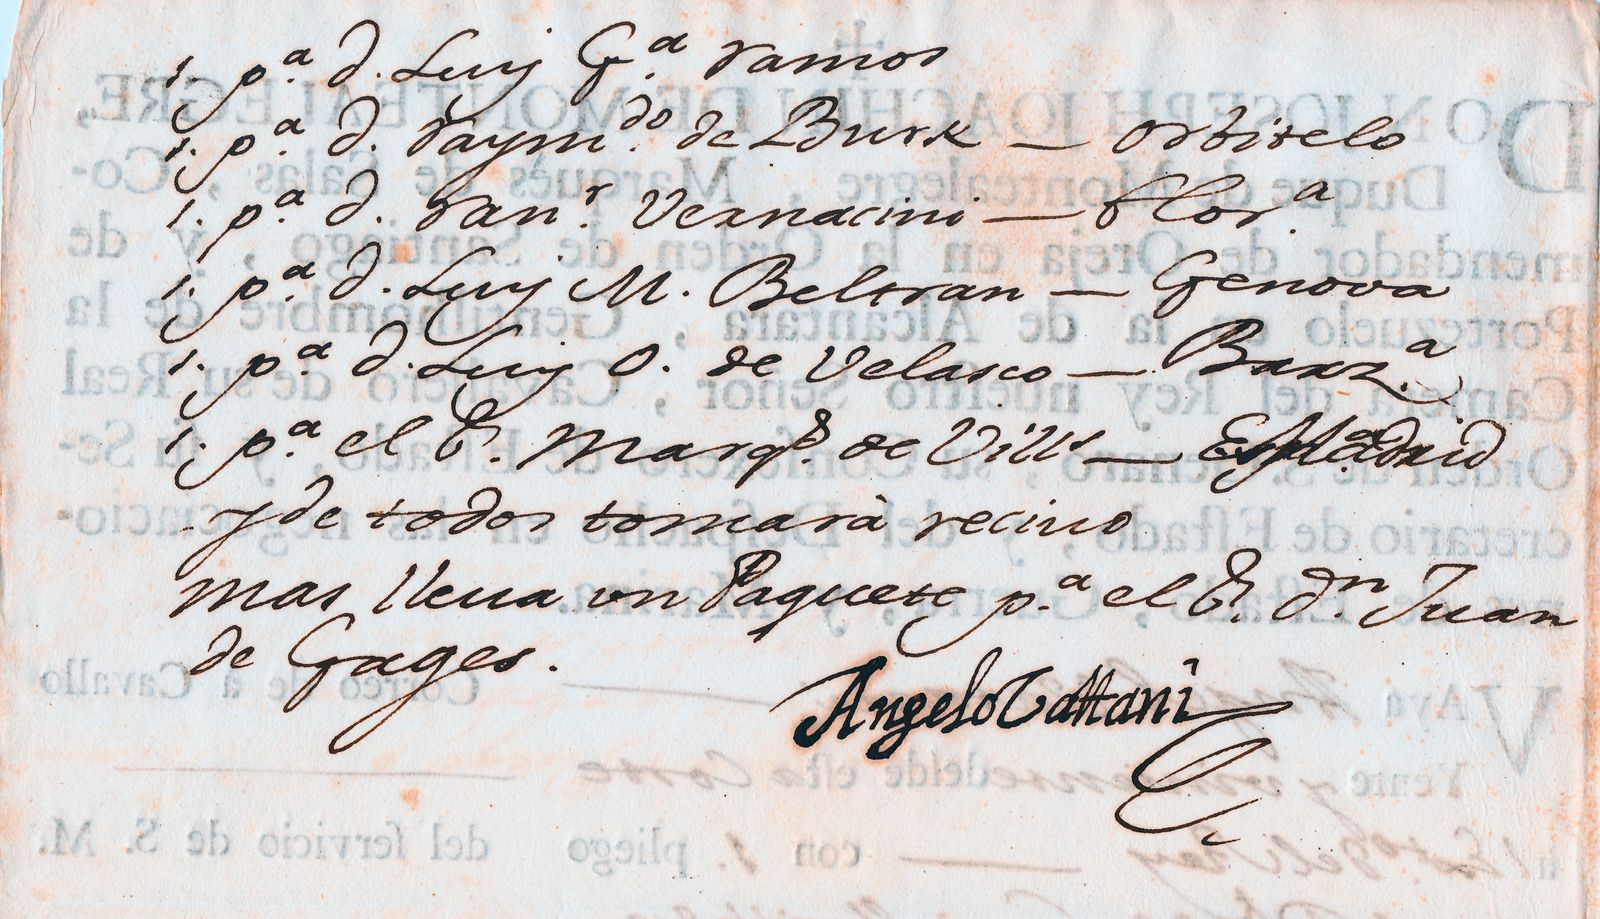 1. p.ª d. Luis G.ª Ramos
1. p.ª d. Raym.do de Burk — Orbitelo
1. p.ª d. Ran.r Vernacini — Flor.ª
1. p.ª d. Luis M. Beltran — Genova
1. p.ª d. Luis O. de Velasco — Barz.ª
1. p.ª el E. Marq.s de Vills — Madrid
y de todos tomarà reciuo
mas lleua un Paquete p.ª el E. d.n Juan
de Gages.
Angelo Cattani
DON JOSEPH JOACHIN DE MONTEALEGRE,
Duque de Montealegre, Marqués de Salas, Co-
mendador de Oreja en la Orden de Santiago, y de
Portezuelo en la de Alcantara, Gentilhombre de la
Camera del Rey nuestro Señor, Cavallero de su Real
Orden de S. Genaro, su Consejero de Estado, y su Se-
cretario de Estado, y del Despacho en las negociacio-
nes de Estado, Guerra, y Marina.
VAya Correo de à Cavallo
Yente y desde esta Corte
à con 1. pliego del servicio de S. M.